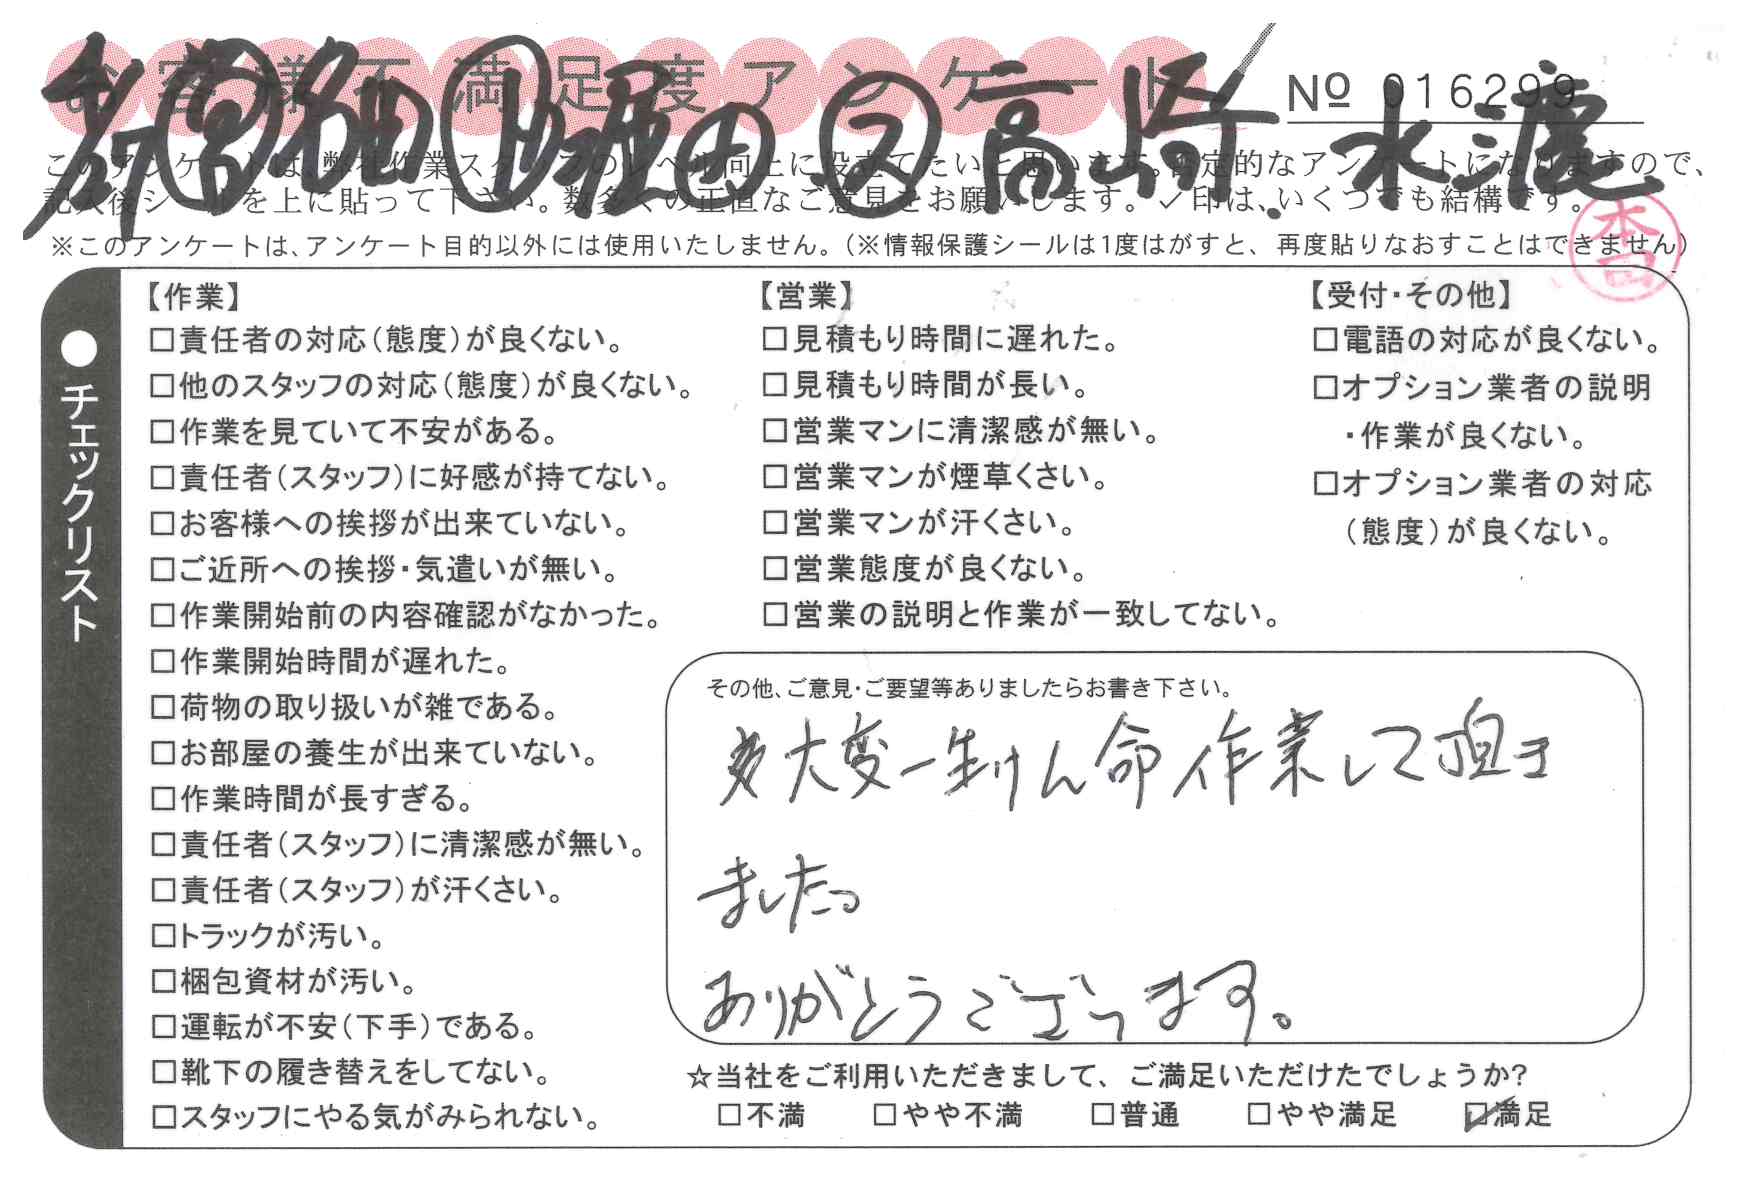 お客様不満足度アンケート
№ 016299
高崎 水濃
このアンケートは、弊社作業スタッフのレベル向上に役立てたいと思います。否定的なアンケートになりますので、
記入後シールを上に貼って下さい。数多くの正直なご意見をお願いします。✓印は、いくつでも結構です。
※このアンケートは、アンケート目的以外には使用いたしません。(※情報保護シールは1度はがすと、再度貼りなおすことはできません)
●チェックリスト
【作業】
□責任者の対応(態度)が良くない。
□他のスタッフの対応(態度)が良くない。
□作業を見ていて不安がある。
□責任者(スタッフ)に好感が持てない。
□お客様への挨拶が出来ていない。
□ご近所への挨拶・気遣いが無い。
□作業開始前の内容確認がなかった。
□作業開始時間が遅れた。
□荷物の取り扱いが雑である。
□お部屋の養生が出来ていない。
□作業時間が長すぎる。
□責任者(スタッフ)に清潔感が無い。
□責任者(スタッフ)が汗くさい。
□トラックが汚い。
□梱包資材が汚い。
□運転が不安(下手)である。
□靴下の履き替えをしてない。
□スタッフにやる気がみられない。
【営業】
□見積もり時間に遅れた。
□見積もり時間が長い。
□営業マンに清潔感が無い。
□営業マンが煙草くさい。
□営業マンが汗くさい。
□営業態度が良くない。
□営業の説明と作業が一致してない。
【受付・その他】
□電話の対応が良くない。
□オプション業者の説明
・作業が良くない。
□オプション業者の対応
(態度)が良くない。
その他、ご意見・ご要望等ありましたらお書き下さい。
大変一生けん命作業して頂き
ました。
ありがとうございます。
☆当社をご利用いただきまして、ご満足いただけたでしょうか?
□不満 □やや不満 □普通 □やや満足 ☑満足